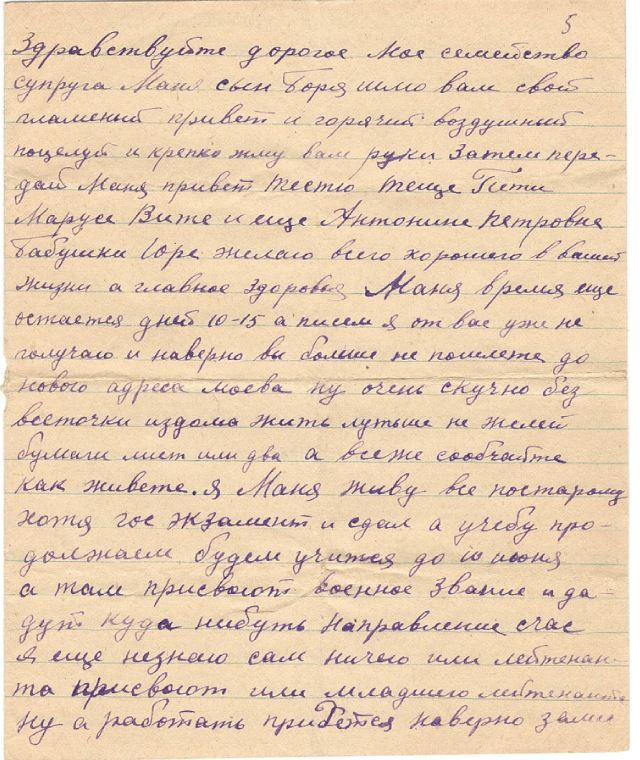 5
Здравствуйте дорогое мое семейство
супруга Маня сын Боря шлю вам свой
пламеный привет и горячий воздушный
поцелуй и крепко жму вам руки Затем пере-
дай Маня привет тестю теще Пети
Марусе Вите и еще Антонине Петровне
Бабушки Юре желаю всего хорошего в вашей
жизни а главное здоровья Маня время еще
остается дней 10-15 а писем я от вас уже не
получаю и наверно вы больше не пошлете до
нового адреса моева ну очень скучно без
весточки издома жить лутьше не жилей
бумаги лист или два а всеже сообчайте
как живете. Я Маня живу все постарому
хотя гос экзамент и сдал а учебу про-
должаем будем учится до 10 июня
а там присвоют военное звание и да-
дут куда нибуть направление счас
я еще незнаю сам ничего или лейтенан-
та присвоют или младшего лейтенанта
ну а работать придется наверно замп